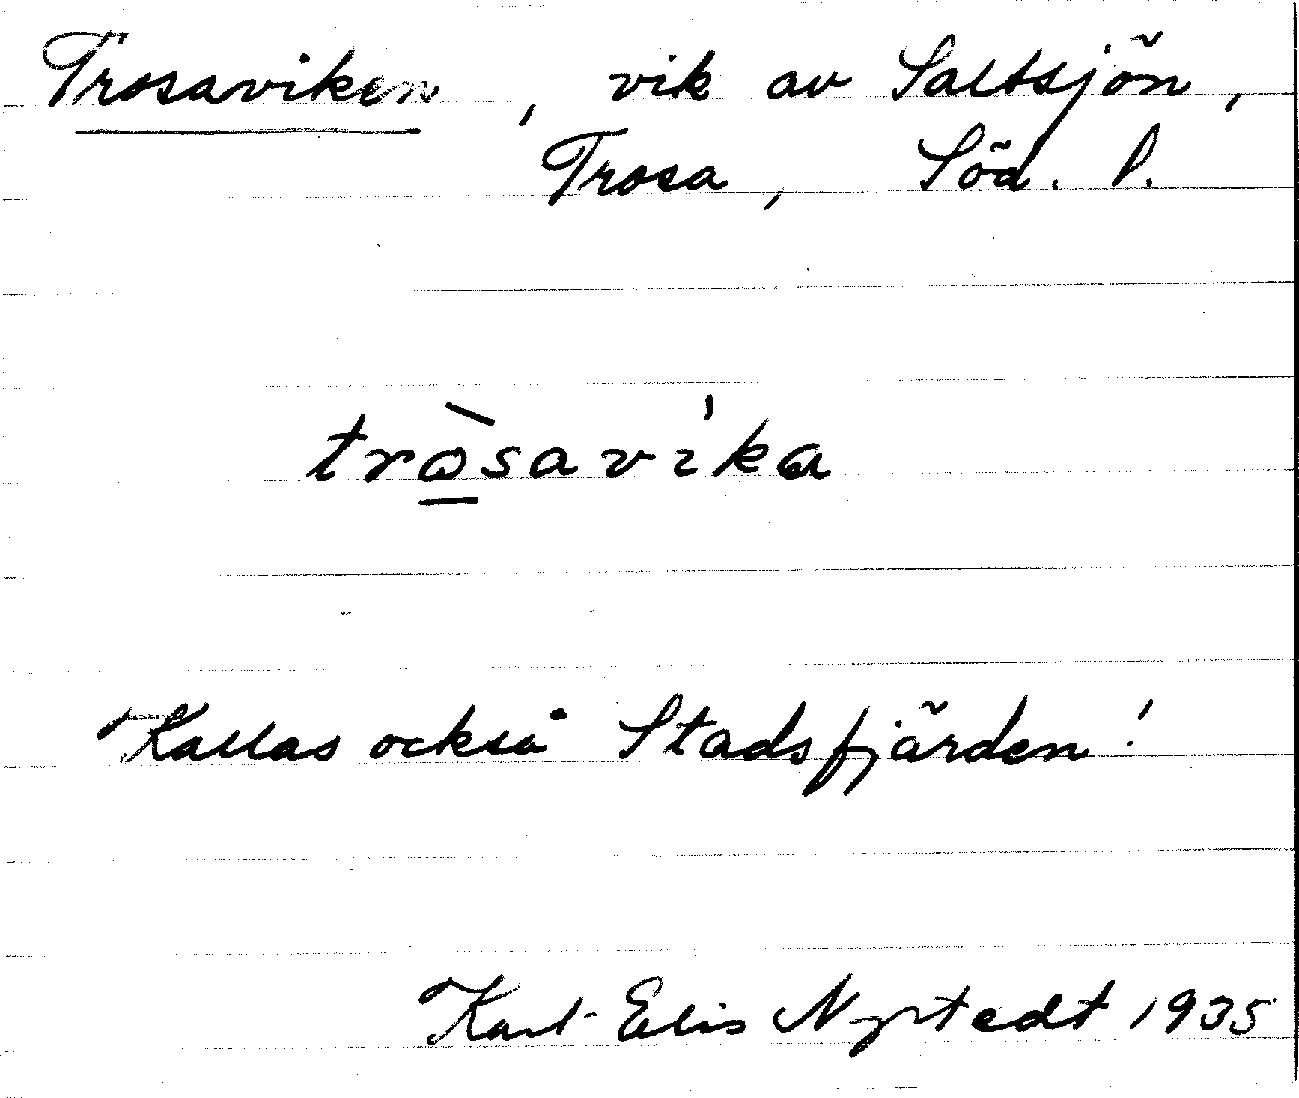 Trosaviken, vik av Saltsjön,
Trosa, Söd. l.
tròsavika
Kallas också Stadsfjärden!
Karl-Elis Nystedt 1935